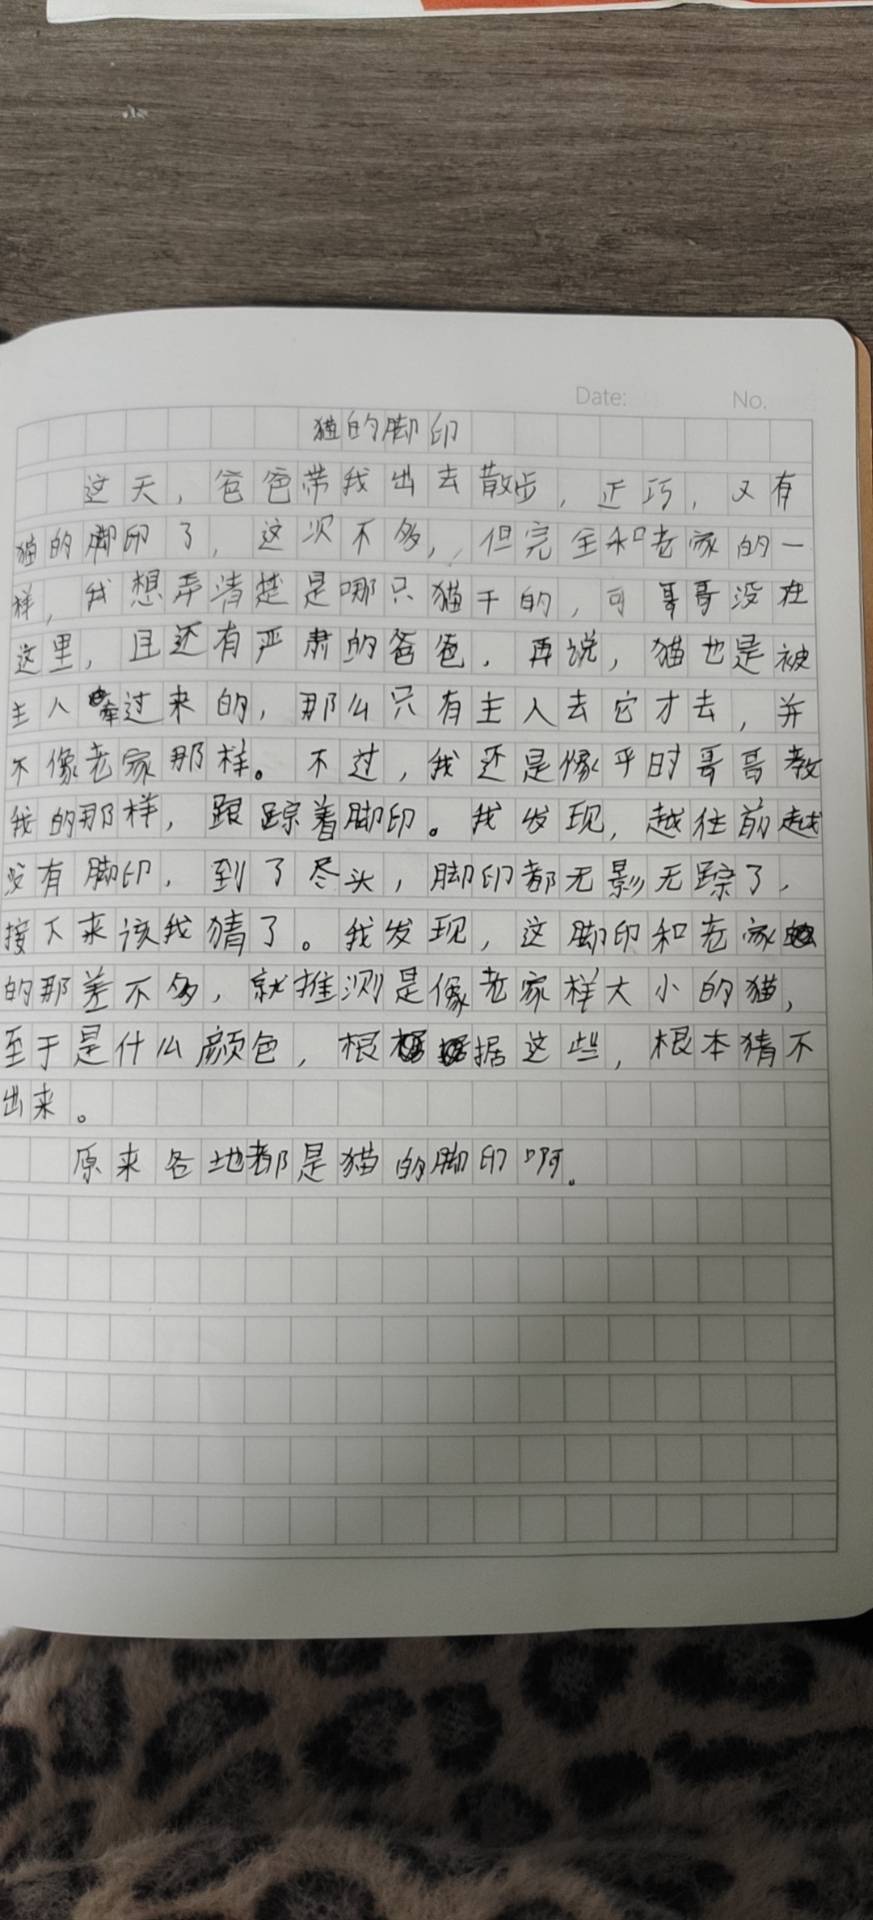 Date:
No.
猫的脚印
这天，爸爸带我出去散步，正巧，又有
猫的脚印了，这次不多，但完全和老家的一
样，我想弄清楚是哪只猫干的，可哥哥没在
这里，且还有严肃的爸爸．再说，猫也是被
主人牵过来的，那么只有主人去它才去，并
不像老家那样。不过，我还是像平时哥哥教
我的那样，跟踪着脚印。我发现，越往前越
没有脚印．到了尽头，脚印都无影无踪了．
接下来该我猜了。我发现，这脚印和老家
的那差不多，就推测是像老家样大小的猫，
至于是什么颜色，根据这些，根本猜不
出来。
原来各地都是猫的脚印啊。